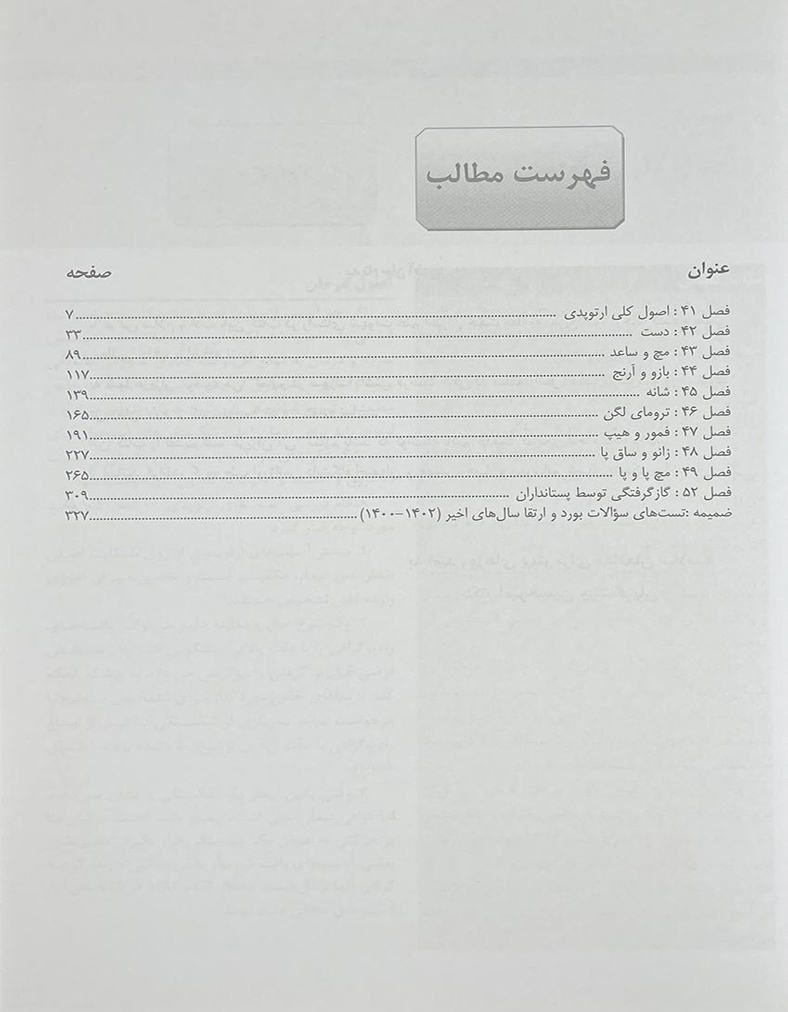 فهرست مطالب
عنوان صفحه
فصل ۴۱ : اصول کلی ارتوپدی ........ ۷
فصل ۴۲ : دست ........ ۳۳
فصل ۴۳ : مچ و ساعد ........ ۸۹
فصل ۴۴ : بازو و آرنج ........ ۱۱۷
فصل ۴۵ : شانه ........ ۱۳۹
فصل ۴۶ : ترومای لگن ........ ۱۶۵
فصل ۴۷ : فمور و هیپ ........ ۱۹۱
فصل ۴۸ : زانو و ساق پا ........ ۲۲۷
فصل ۴۹ : مچ پا و پا ........ ۲۶۵
فصل ۵۲ : گازگرفتگی توسط پستانداران ........ ۳۰۹
ضمیمه :تست‌های سؤالات بورد و ارتقا سال‌های اخیر (۱۴۰۲–۱۴۰۰) ........ ۳۲۷